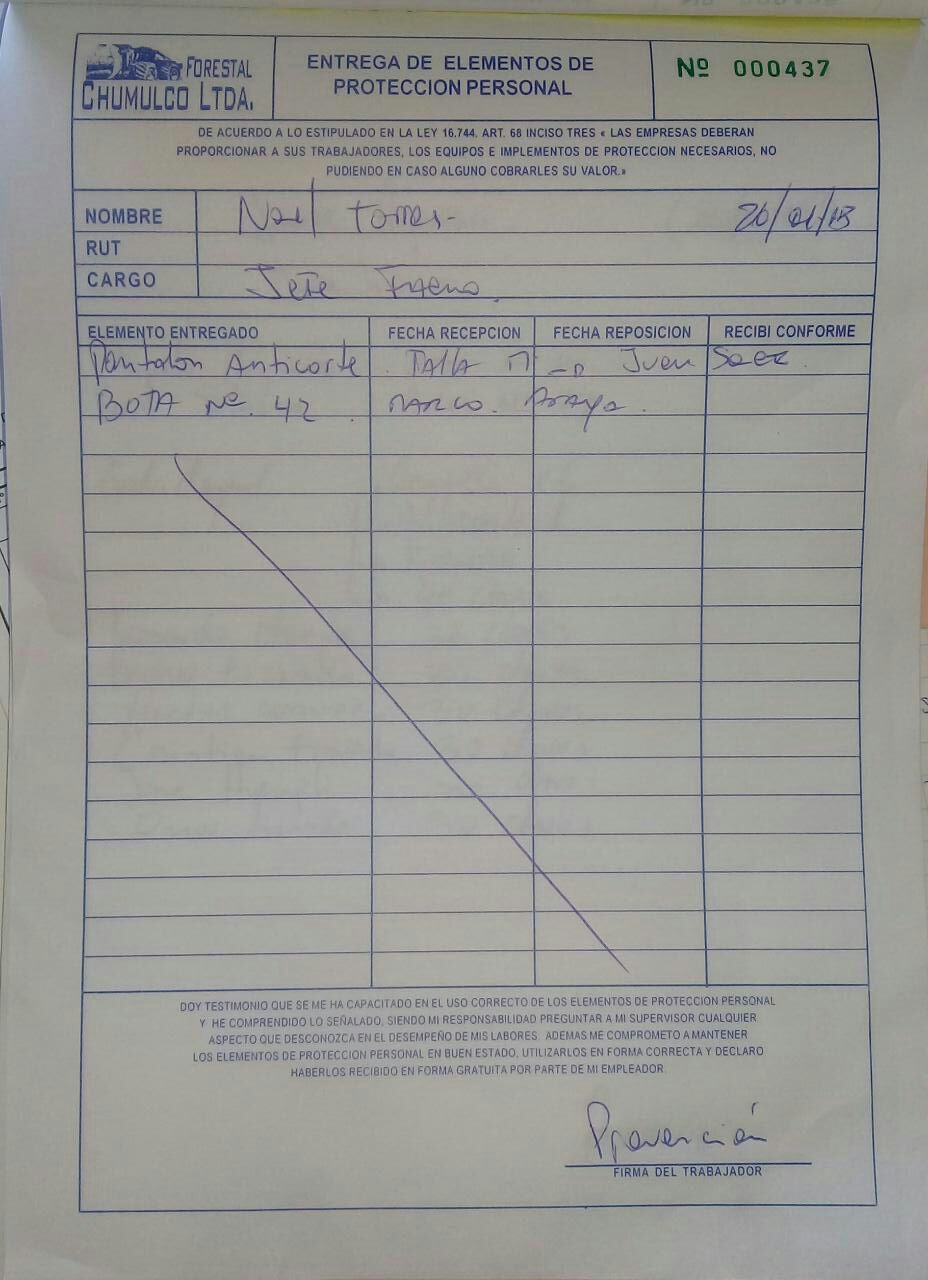 FORESTAL
CHUMULCO LTDA.
ENTREGA DE ELEMENTOS DE
PROTECCION PERSONAL
Nº 000437
DE ACUERDO A LO ESTIPULADO EN LA LEY 16.744, ART. 68 INCISO TRES « LAS EMPRESAS DEBERAN
PROPORCIONAR A SUS TRABAJADORES, LOS EQUIPOS E IMPLEMENTOS DE PROTECCION NECESARIOS, NO
PUDIENDO EN CASO ALGUNO COBRARLES SU VALOR.»
NOMBRE Noel Torres-
RUT
CARGO Jefe Faena.
ELEMENTO ENTREGADO FECHA RECEPCION FECHA REPOSICION RECIBI CONFORME
Pantalon Anticorte. TALLA M Juan Saez.
BOTA Nº. 42. MARCO. Araya.
DOY TESTIMONIO QUE SE ME HA CAPACITADO EN EL USO CORRECTO DE LOS ELEMENTOS DE PROTECCION PERSONAL
Y HE COMPRENDIDO LO SEÑALADO, SIENDO MI RESPONSABILIDAD PREGUNTAR A MI SUPERVISOR CUALQUIER
ASPECTO QUE DESCONOZCA EN EL DESEMPEÑO DE MIS LABORES. ADEMAS ME COMPROMETO A MANTENER
LOS ELEMENTOS DE PROTECCION PERSONAL EN BUEN ESTADO, UTILIZARLOS EN FORMA CORRECTA Y DECLARO
HABERLOS RECIBIDO EN FORMA GRATUITA POR PARTE DE MI EMPLEADOR.
Prevención
FIRMA DEL TRABAJADOR